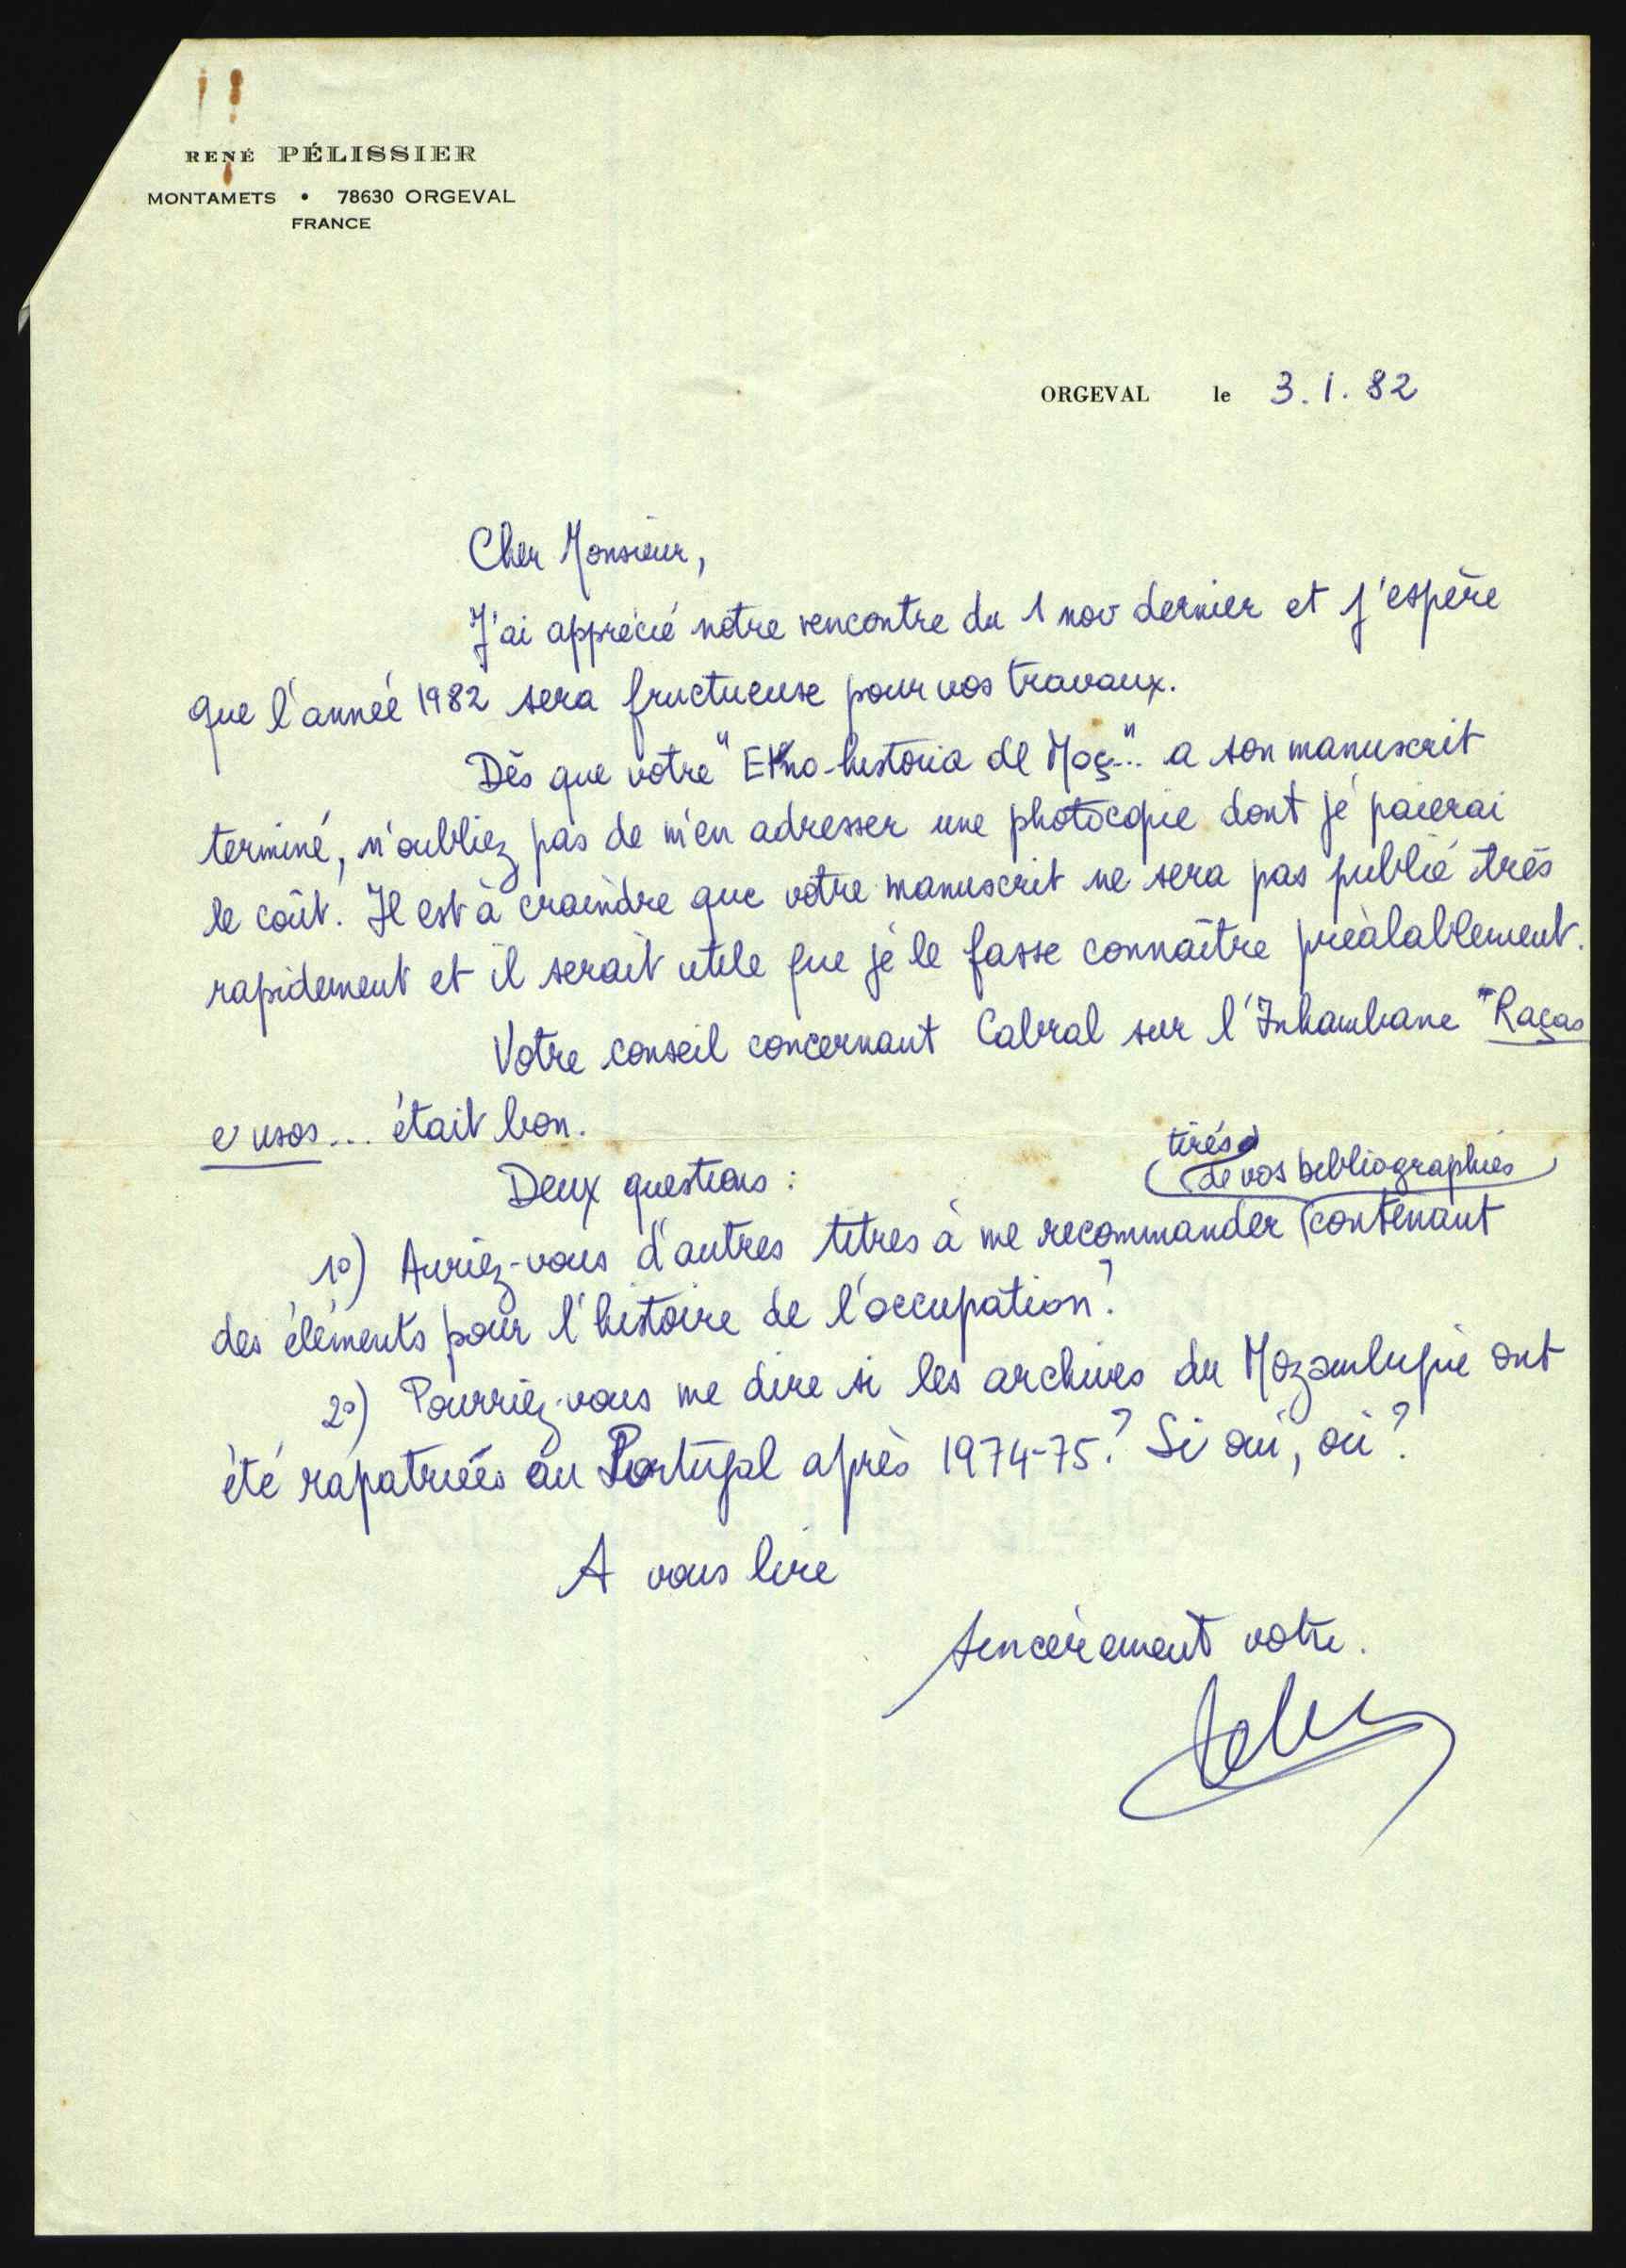 RENÉ PÉLISSIER
MONTAMETS • 78630 ORGEVAL
FRANCE
ORGEVAL le 3.1.82
Cher Monsieur,
J'ai apprécié notre rencontre du 1 nov dernier et j'espère
que l'année 1982 sera fructueuse pour vos travaux.
Dès que votre "Etno-historia de Moç..." a son manuscrit
terminé, n'oubliez pas de m'en adresser une photocopie dont je paierai
le coût. Il est à craindre que votre manuscrit ne sera pas publié très
rapidement et il serait utile que je le fasse connaître préalablement.
Votre conseil concernant Cabral sur l'Inhambane "Raças
e usos... était bon.
Deux questions :
tirés
(de vos bibliographies)
1º) Auriez-vous d'autres titres à me recommander (contenant
des éléments pour l'histoire de l'occupation?
2º) Pourriez-vous me dire si les archives du Mozambique ont
été rapatriées au Portugal après 1974-75? Si oui, où?
A vous lire
sincèrement votre.